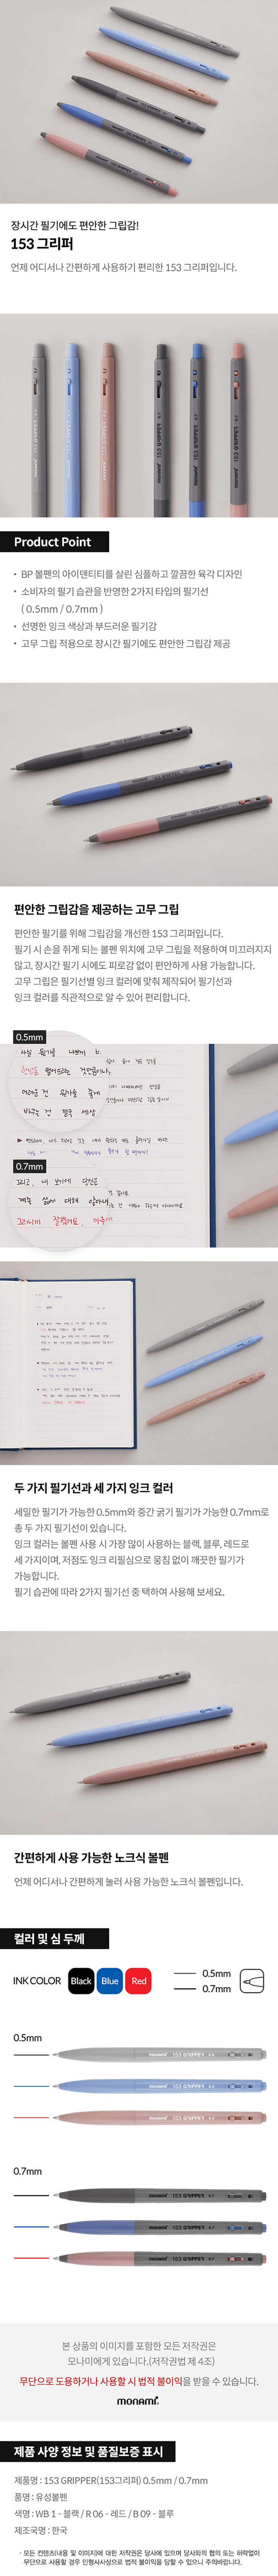 장시간 필기에도 편안한 그립감!
153 그리퍼
언제 어디서나 간편하게 사용하기 편리한 153 그리퍼입니다.
Product Point
• BP 볼펜의 아이덴티티를 살린 심플하고 깔끔한 육각 디자인
• 소비자의 필기 습관을 반영한 2가지 타입의 필기선
( 0.5mm / 0.7mm )
• 선명한 잉크 색상과 부드러운 필기감
• 고무 그립 적용으로 장시간 필기에도 편안한 그립감 제공
편안한 그립감을 제공하는 고무 그립
편안한 필기를 위해 그립감을 개선한 153 그리퍼입니다.
필기 시 손을 쥐게 되는 볼펜 위치에 고무 그립을 적용하여 미끄러지지
않고, 장시간 필기 시에도 피로감 없이 편안하게 사용 가능합니다.
고무 그립은 필기선별 잉크 컬러에 맞춰 제작되어 필기선과
잉크 컬러를 직관적으로 알 수 있어 편리합니다.
0.5mm
0.7mm
두 가지 필기선과 세 가지 잉크 컬러
세밀한 필기가 가능한 0.5mm와 중간 굵기 필기가 가능한 0.7mm로
총 두 가지 필기선이 있습니다.
잉크 컬러는 볼펜 사용 시 가장 많이 사용하는 블랙, 블루, 레드로
세 가지이며, 저점도 잉크 리필심으로 뭉침 없이 깨끗한 필기가
가능합니다.
필기 습관에 따라 2가지 필기선 중 택하여 사용해 보세요.
간편하게 사용 가능한 노크식 볼펜
언제 어디서나 간편하게 눌러 사용 가능한 노크식 볼펜입니다.
컬러 및 심 두께
INK COLOR Black Blue Red
0.5mm
0.7mm
0.5mm
monami 153 GRIPPER 0.5
monami 153 GRIPPER 0.5
monami 153 GRIPPER 0.5
0.7mm
monami 153 GRIPPER 0.7
monami 153 GRIPPER 0.7
monami 153 GRIPPER 0.7
본 상품의 이미지를 포함한 모든 저작권은
모나미에게 있습니다.(저작권법 제 4조)
무단으로 도용하거나 사용할 시 법적 불이익을 받을 수 있습니다.
monami
제품 사양 정보 및 품질보증 표시
제품명 : 153 GRIPPER(153그리퍼) 0.5mm / 0.7mm
품명 : 유성볼펜
색명 : WB 1 - 블랙 / R 06 - 레드 / B 09 - 블루
제조국명 : 한국
· 모든 컨텐츠(내용 및 이미지)에 대한 저작권은 당사에 있으며 당사와의 협의 또는 허락없이
무단으로 사용할 경우 민형사사상으로 법적 불이익을 당할 수 있으니 주의바랍니다.